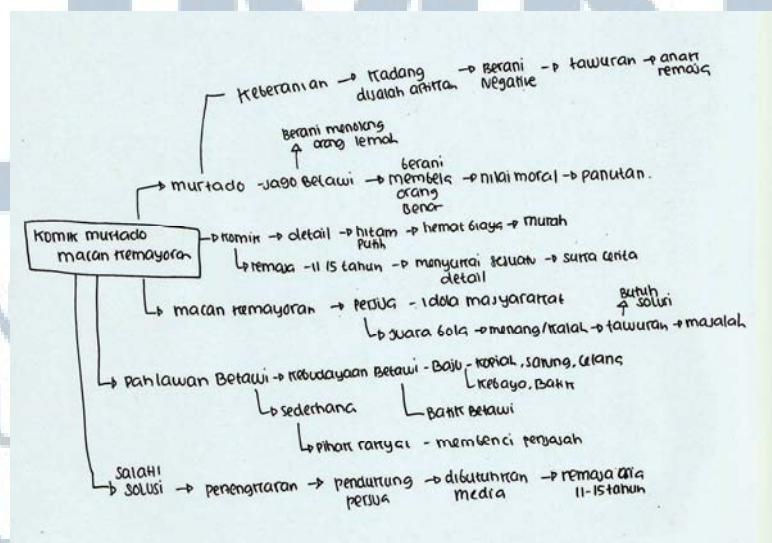 Keberanian → Kadang disalah artikan → Berani Negative → tawuran → anak remaja
Berani menolong orang lemah
murtado - jago Betawi → berani membela orang benar → nilai moral → panutan.
Komik murtado macan kemayoran
komik → detail → hitam putih → hemat biaya → murah
remaja - 11 15 tahun → menyukai sesuatu detail → suka cerita
macan kemayoran → persija - idola masyarakat
Butuh solusi
juara bola → menang/kalah → tawuran → masalah
Pahlawan Betawi → kebudayaan Betawi - Baju - kopiah, sarung, celana
kebaya, Batik
sederhana
Batik Betawi
pihak rakyat - membenci penjajah
SALAH1 SOLUSI → penengkaran → pendukung persija → dibutuhkan media → remaja usia 11-15 tahun